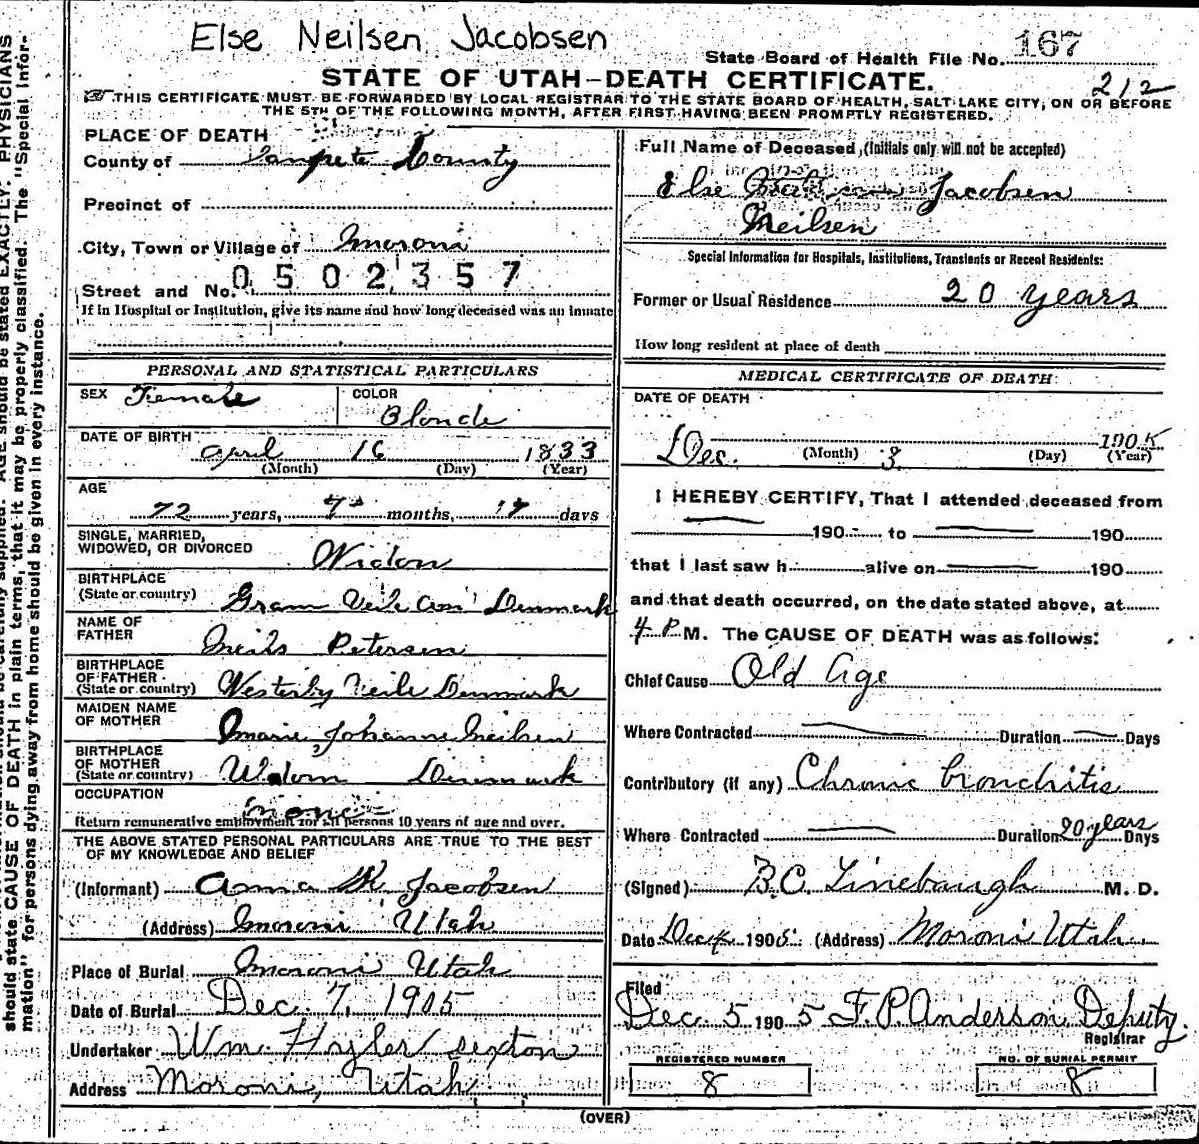 Else Neilsen Jacobsen
State Board of Health File No. 167
STATE OF UTAH–DEATH CERTIFICATE.
212
THIS CERTIFICATE MUST BE FORWARDED BY LOCAL REGISTRAR TO THE STATE BOARD OF HEALTH, SALT LAKE CITY, ON OR BEFORE
THE 5TH OF THE FOLLOWING MONTH, AFTER FIRST HAVING BEEN PROMPTLY REGISTERED.
PLACE OF DEATH
County of Sanpete County
Precinct of
City, Town or Village of Moroni
0502357
Street and No.
If in Hospital or Institution, give its name and how long deceased was an inmate
PERSONAL AND STATISTICAL PARTICULARS
SEX Female COLOR Blonde
DATE OF BIRTH
April 16 1833
(Month) (Day) (Year)
AGE
72 years, 7 months, 17 days
SINGLE, MARRIED,
WIDOWED, OR DIVORCED Widow
BIRTHPLACE
(State or country) Gram Veile Denmark
NAME OF
FATHER Neils Petersen
BIRTHPLACE
OF FATHER
(State or country) Westerby Veile Denmark
MAIDEN NAME
OF MOTHER Marie Johanne Neilsen
BIRTHPLACE
OF MOTHER
(State or country) Denmark
OCCUPATION
none
Return remunerative employment for all persons 10 years of age and over.
THE ABOVE STATED PERSONAL PARTICULARS ARE TRUE TO THE BEST
OF MY KNOWLEDGE AND BELIEF
(Informant) Anna K Jacobsen
(Address) Moroni Utah
Place of Burial Moroni Utah
Date of Burial Dec. 7, 1905
Undertaker Wm. Hyler sexton
Address Moroni, Utah
Full Name of Deceased (Initials only will not be accepted)
Else Jacobsen
Neilsen
Special Information for Hospitals, Institutions, Transients or Recent Residents:
Former or Usual Residence 20 years
How long resident at place of death
MEDICAL CERTIFICATE OF DEATH
DATE OF DEATH
Dec. 3 1905
(Month) (Day) (Year)
I HEREBY CERTIFY, That I attended deceased from
190 to 190
that I last saw h alive on 190
and that death occurred, on the date stated above, at
4 P M. The CAUSE OF DEATH was as follows:
Chief Cause Old Age
Where Contracted Duration Days
Contributory (if any) Chronic bronchitis
Where Contracted Duration 20 years Days
(Signed) B.C. Linebaugh M. D.
Date Dec 4 1905 (Address) Moroni Utah
Filed
Dec. 5 1905 F. P. Anderson, Deputy.
Registrar
REGISTERED NUMBER
8
NO. OF BURIAL PERMIT
8
(OVER)
should state CAUSE OF DEATH in plain terms, that it may be properly classified. The "Special Infor-
mation" for persons dying away from home should be given in every instance.